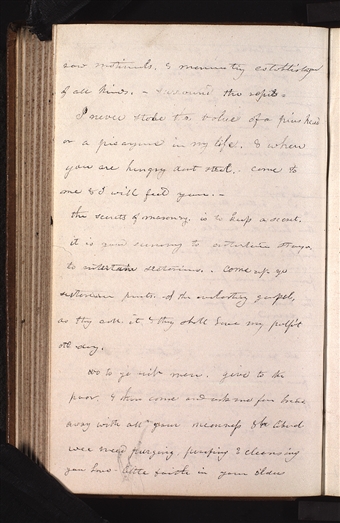 raw materials. & manufactory established
of all kinds. -
I never stole the value of a pins head
or a picayune in my life. & when
you are hungry dont steal. come to
me & I will feed you. -
the secrets of masonry. is to keep a secret.
it is good economy to entertain strangers
to entertain sectarians. come up ye
sectarian priests of the everlasting gospel,
as they call it & they shall have my pulpit
all day.
wo to ye rich men. give to the
poor, & then come and ask me for bread
away with all your meanness & be liberal
we need purging, purifying & cleansing
you have little faith in your Elders